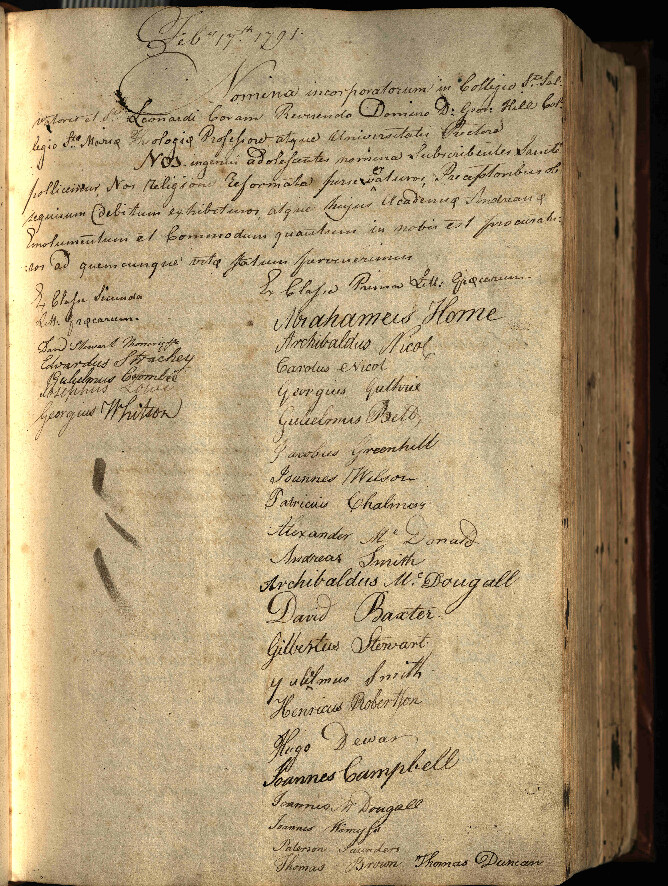 Feb.ry 17.th 1791.
Nomina incorporatorum in Collegio S.ti Sal-
vatoris et S.ti Leonardi Coram Reverendo Domino D: Geor: Hill Col-
legio S.tae Mariæ Theologiæ Professore atque Universitatis Rectore
Nos ingenui adolescentes nomina Subscribentes Sancte
pollicemur Nos Religione Reformata perseveraturos, Præceptoribus ob-
sequium debitum exhibituros, atque hujus Academiæ Andreanæ
Emolumentum et Commodum quantum in nobis est procuratu-
:ros ad quemcunque vitæ statum pervenerimus
Ex Classe Secunda
Litt. Græcarum.
David Stewart
Edvardus Strachey
Gulielmus Crombie
Josephus Lowe
Georgius Whitson
Ex Classe Prima Litt. Græcarum.
Abrahameis Home
Archibaldus Nicol
Carolus Nicol
Georgius Guthrie
Gulielmus Bell,
Jacobus Greenhill
Joannes Wilson
Patricius Chalmers
Alexander Mc Donald
Andreas Smith
Archibaldus Mc. Dougall
David Baxter.
Gilbertus Stewart
Gulielmus Smith
Henricus Robertson
Hugo Dewar
Joannes Campbell
Joannes Mc Dougall
Joannes Wemyss
Paterson Saunders
Thomas Brown Thomas Duncan